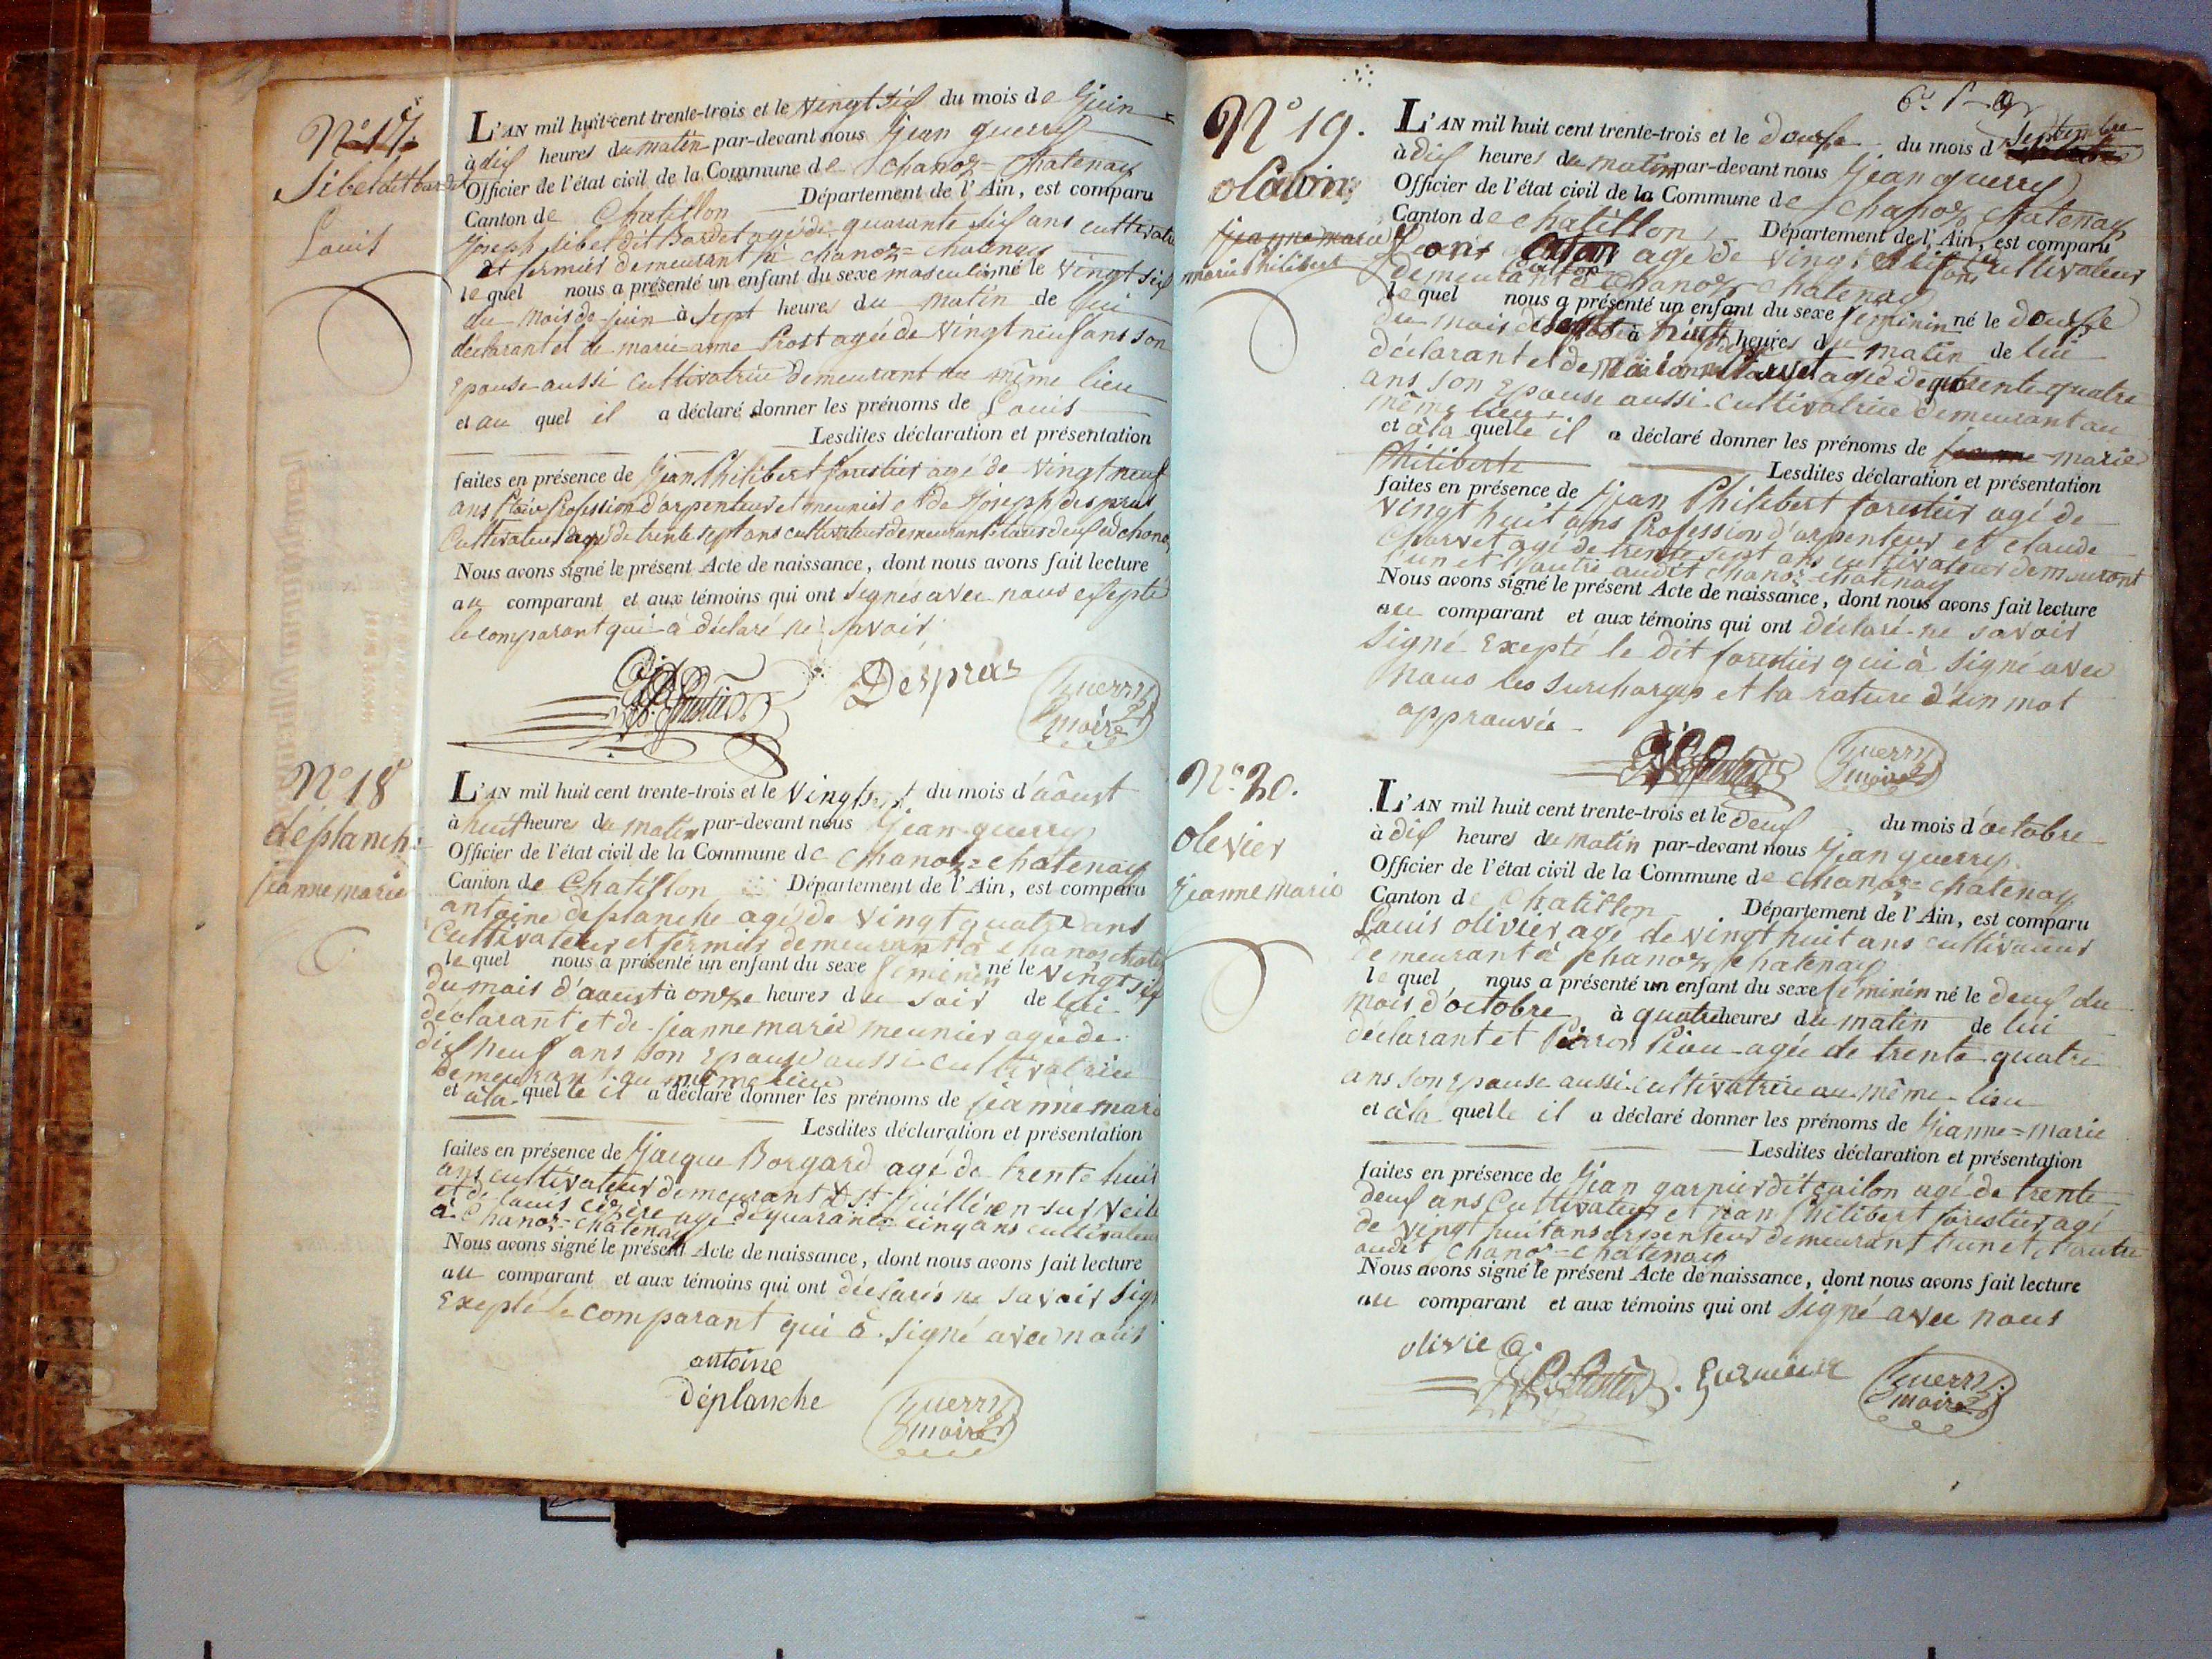 N° 17.
Sibeldit bardet
Louis
L'AN mil huit-cent trente-trois et le vingt six du mois de juin
à dix heures du matin par-devant nous jean guerry
Officier de l'état civil de la Commune de chanoz=chatenay
Canton de Chatillon Département de l'Ain, est comparu
joseph sibel dit Bardet agé de quarante six ans cultivateur
et fermier demeurant à chanoz=chatenay
le quel nous a présenté un enfant du sexe masculin né le vingt six
du mois de juin à sept heures du matin de lui
déclarant et de marie=anne Prost agée de vingt neuf ans son
epouse aussi cultivatrice demeurant au même lieu
et au quel il a déclaré donner les prénoms de Louis
Lesdites déclaration et présentation
faites en présence de jean Philibert forestier agé de vingt neuf
ans Profession d'arpenteur et meunier et de joseph despras
Cultivateur agé de trente sept ans cultivateur demeurant tous deux à chanoz
Nous avons signé le présent Acte de naissance, dont nous avons fait lecture
au comparant et aux témoins qui ont signés avec nous excepté
le comparant qui à déclaré ne savoir
Despras
guerry
maire
N° 18
déplanche
jeanne marie
L'AN mil huit cent trente-trois et le vingt sept du mois d'aôust
à huit heures du matin par-devant nous jean guerry
Officier de l'état civil de la Commune de chanoz=chatenay
Canton de Chatillon Département de l'Ain, est comparu
antoine deplanche agé de vingt quatre ans
Cultivateur et fermier demeurant à chanoz chaten
le quel nous a présenté un enfant du sexe feminin né le vingt six
du mois d'aoust à onze heures du soir de lui
déclarant et de jeanne marie meunier agée de
dix neuf ans son epouse aussi cultivatrice
demeurant au même lieu
et à la quelle il a déclaré donner les prénoms de jeanne marie
Lesdites déclaration et présentation
faites en présence de jacque Borgard agé de trente huit
ans cultivateur demeurant à St. juillien sur veile
et de Louis agé de quarante cinq ans cultivateur
à Chanoz=chatenay
Nous avons signé le présent Acte de naissance, dont nous avons fait lecture
au comparant et aux témoins qui ont déclarés ne savoir sign
Exepté le comparant qui à signé avec nous
antoine
déplanche
guerry
maire
N° 19.
jeanne marie
marie Philibert
L'AN mil huit cent trente-trois et le douse du mois d septembre
à dix heures du matin par-devant nous jean guerry
Officier de l'état civil de la Commune de chanoz chatenay
Canton de chatillon Département de l'Ain, est comparu
agé de vingt ans cultivateur
demeurant à chanoz chatenay
le quel nous a présenté un enfant du sexe feminin né le douse
du mois de à huit heures du matin de lui
déclarant et de agée de trente quatre
ans son epouse aussi cultivatrice demeurant au
même lieu
et à la quelle il a déclaré donner les prénoms de jeanne marie
Philiberte Lesdites déclaration et présentation
faites en présence de jean Philibert forestier agé de
vingt huit ans Profession d'arpenteur et claude
Charvet agé de trente sept ans cultivateur demeurant
l'un et l'autre audit chanoz chatenay
Nous avons signé le présent Acte de naissance, dont nous avons fait lecture
au comparant et aux témoins qui ont déclaré ne savoir
signé Exepté le dit forestier qui à signé avec
nous les surcharges et la rature d'un mot
approuvée
guerry
maire
N° 20.
olivier
jeanne marie
L'AN mil huit cent trente-trois et le deux du mois d'octobre
à dix heures du matin par-devant nous jean guerry
Officier de l'état civil de la Commune de chanoz=chatenay
Canton de Chatillon Département de l'Ain, est comparu
Louis olivier agé de vingt huit ans cultivateur
demeurant à chanoz chatenay
le quel nous a présenté un enfant du sexe feminin né le deux du
mois d'octobre à quatre heures du matin de lui
déclarant et agée de trente quatre
ans son epouse aussi cultivatrice au même lieu
et à la quelle il a déclaré donner les prénoms de jeanne=marie
Lesdites déclaration et présentation
faites en présence de jean garnier dit cailon agé de trente
deux ans Cultivateur et jean Philibert forestier agé
de vingt huit ans arpenteur demeurant l'un et l'autre
audit chanoz=chatenay
Nous avons signé le présent Acte de naissance, dont nous avons fait lecture
au comparant et aux témoins qui ont signé avec nous
olivie
guerry
maire